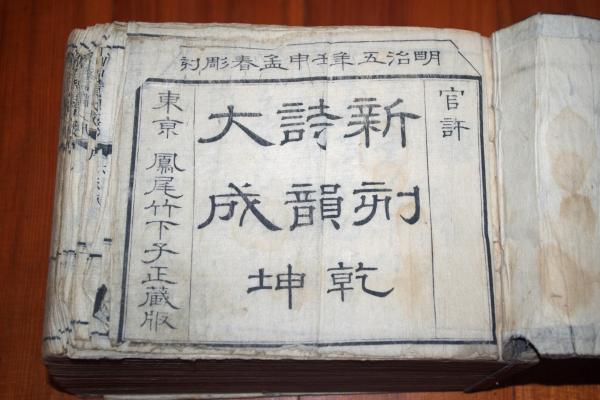 明治五年壬申孟春彫刋
官許
新刋
詩韻
大成
乾坤
東京 鳳尾竹下子正藏版